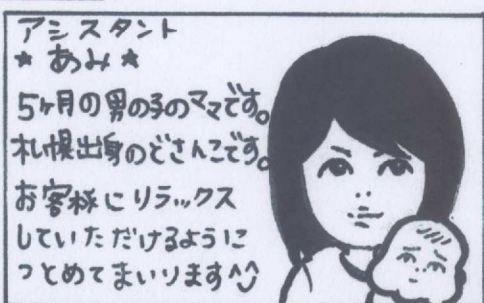 アシスタント
★あみ★
5ヶ月の男の子のママです。
札幌出身のどさんこです。
お客様にリラックス
していただけるように
つとめてまいります^^